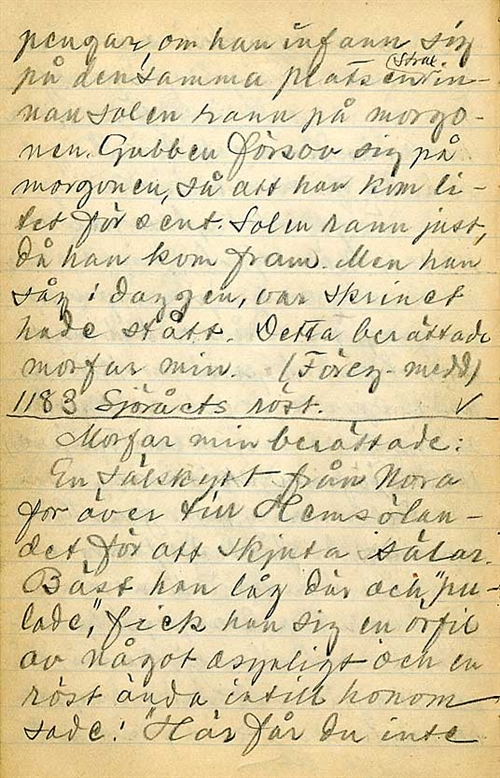 pengar, om han infann sig
på densamma platsen (Stral.) in-
nan solen rann på morgo-
nen. Gubben försov sig på
morgonen, så att han kom li-
tet för sent. Solen rann just,
då han kom fram. Men han
såg i daggen, var skrinet
hade stått. Detta berättade
morfar min. (Föreg. medd)
1183 Sjöråets röst. ✓
Morfar min berättade:
En sälskytt från Nora
for över till Hemsölan-
det för att skjuta sälar.
Bäst han låg där och "pu-
lade", fick han sig en örfil
av något osynligt och en
röst ända intill honom
sade: "Här får du inte